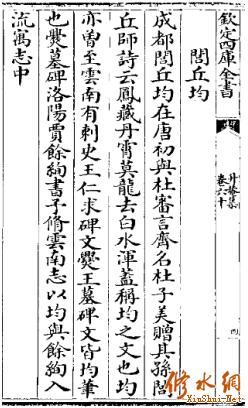 欽定四庫全書
升菴集
卷六十
四
閭丘均
成都閭丘均在唐初與杜審言齊名杜子美贈其孫閭
丘師詩云鳳藏丹霄莫龍去白水渾蓋稱均之文也均
亦曽至雲南有刺史王仁求碑文爨王墓碑文皆均筆
也爨墓碑洛陽賈餘絢書予脩雲南志以均與餘絢入
流寓志中
修水網
XiuShui.Net